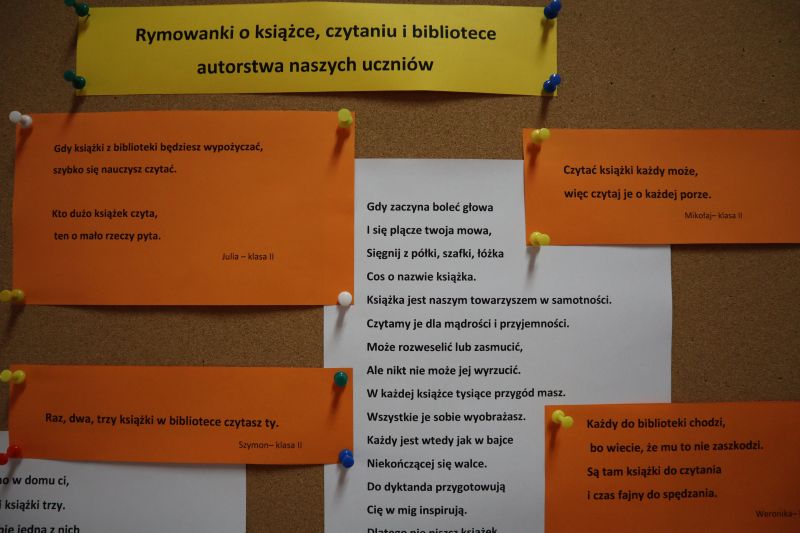 Rymowanki o książce, czytaniu i bibliotece
autorstwa naszych uczniów
Gdy książki z biblioteki będziesz wypożyczać,
szybko się nauczysz czytać.
Kto dużo książek czyta,
ten o mało rzeczy pyta.
Julia – klasa II
Czytać książki każdy może,
więc czytaj je o każdej porze.
Mikołaj– klasa II
Gdy zaczyna boleć głowa
I się plącze twoja mowa,
Sięgnij z półki, szafki, łóżka
Cos o nazwie książka.
Książka jest naszym towarzyszem w samotności.
Czytamy je dla mądrości i przyjemności.
Może rozweselić lub zasmucić,
Ale nikt nie może jej wyrzucić.
W każdej książce tysiące przygód masz.
Wszystkie je sobie wyobrażasz.
Każdy jest wtedy jak w bajce
Niekończącej się walce.
Do dyktanda przygotowują
Cię w mig inspirują.
Dlatego nie niszcz książek
Raz, dwa, trzy książki w bibliotece czytasz ty.
Szymon– klasa II
Każdy do biblioteki chodzi,
bo wiecie, że mu to nie zaszkodzi.
Są tam książki do czytania
i czas fajny do spędzania.
Weronika–
w domu ci,
książki trzy.
jedna z nich